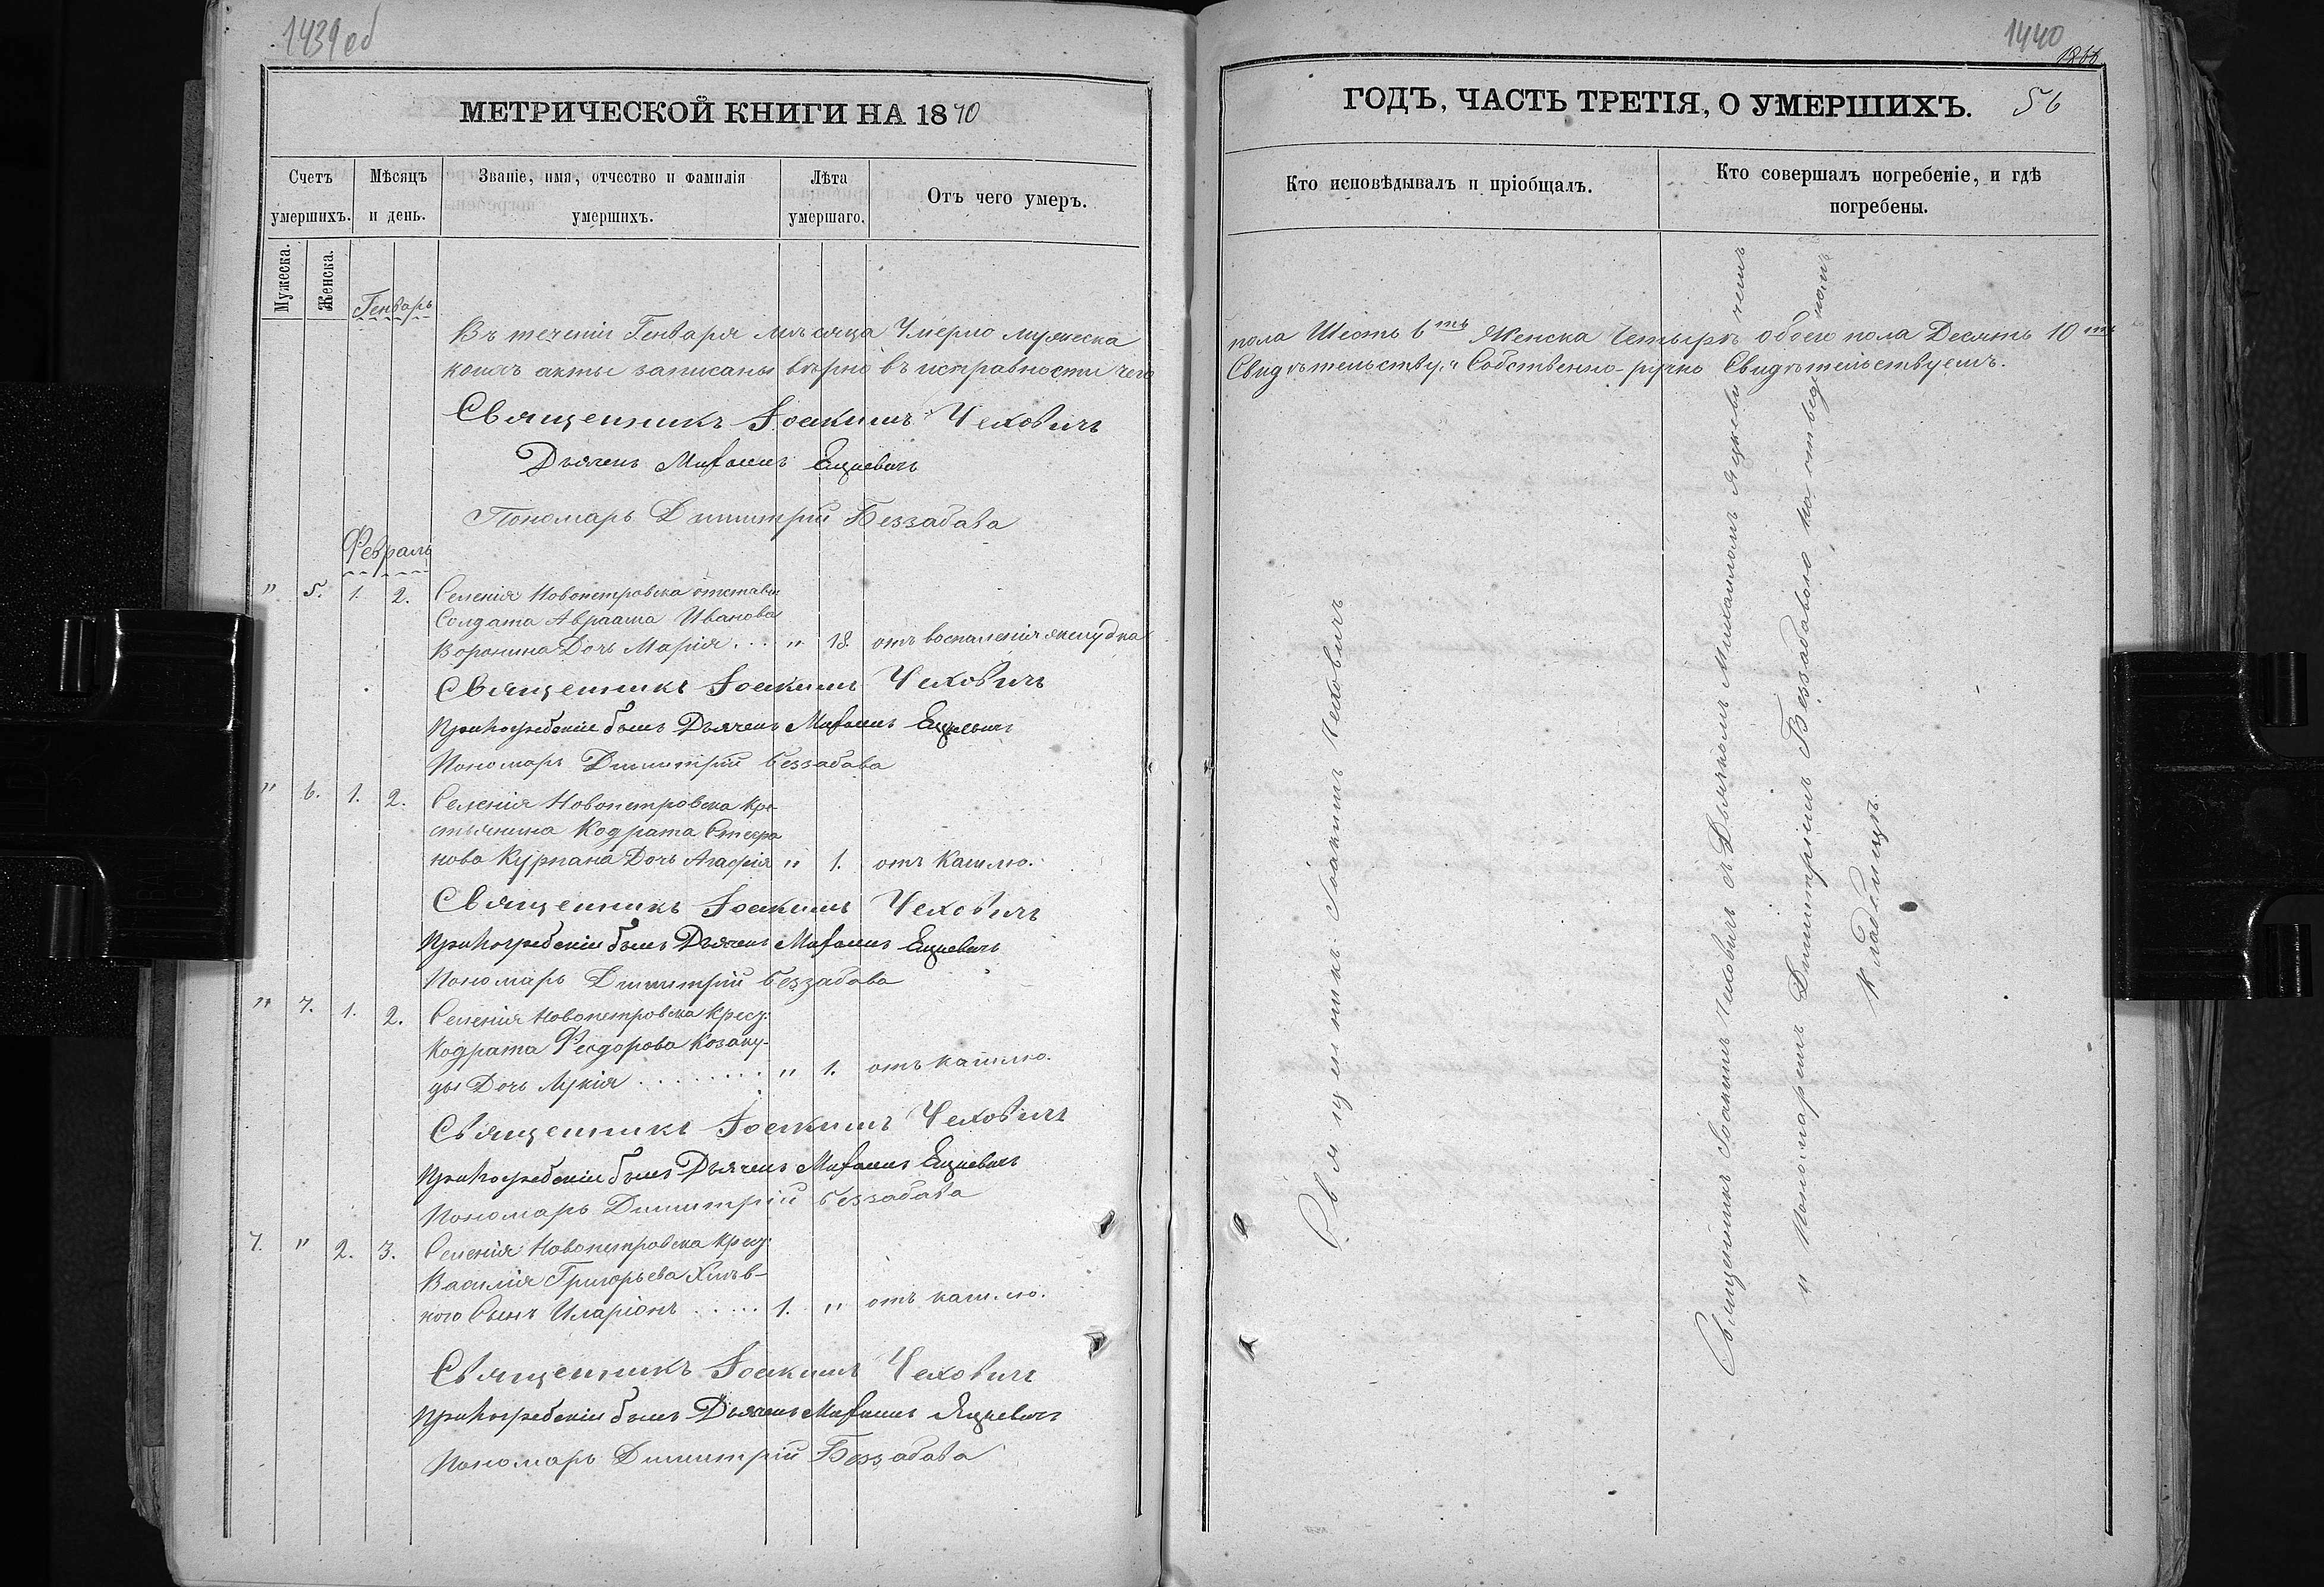 1439об
МЕТРИЧЕСКОЙ КНИГИ НА 1870
Счетъ умершихъ.
Мѣсяцъ и день.
Званіе, имя, отчество и фамилія умершихъ.
Лѣта умершаго.
Отъ чего умеръ.
Мужеска.
Женска.
Генварь
Въ теченіи Генваря мѣсяца Умерло мужеска
коихъ акты записаны вѣрно въ исправности чего
Священникъ Іоакимъ Чеховичъ
Дьячекъ Михаилъ Яцкевичъ
Пономарь Димитрій Беззабава
Февраль
" 5. 1. 2. Селенія Новопетровска отставн
Солдата Авраама Иванова
Воронина Дочь Марія . . . " 18. отъ воспаленія желудка
Священникъ Іоакимъ Чеховичъ
При погребеніи былъ Дьячекъ Михаилъ Яцкевичъ
Пономарь Димитрій Беззабава
" 6. 1. 2. Селенія Новопетровска Кре-
стьянина Кодрата Стефа
нова Курпана Дочь Агафія " 1. отъ Кашлю.
Священникъ Іоакимъ Чеховичъ
При погребеніи былъ Дьячекъ Михаилъ Яцкевичъ
Пономарь Димитрій Беззабава
" 7. 1. 2. Селенія Новопетровска Крест:
Кодрата Феодорова Козаку-
цы Дочь Лукія . . . . . . . . " 1. отъ кашлю.
Священникъ Іоакимъ Чеховичъ
При погребеніи былъ Дьячекъ Михаилъ Яцкевичъ
Пономарь Димитрій Беззабава
7. " 2. 3. Селенія Новопетровска Крест:
Василія Григорьева Хмѣв-
кого Сынъ Иларіонъ . . . . . 1. " отъ кашлю.
Священникъ Іоакимъ Чеховичъ
При погребеніи былъ Дьячекъ Михаилъ Яцкевичъ
Пономарь Димитрій Беззабава
1440
ГОДЪ, ЧАСТЬ ТРЕТІЯ, О УМЕРШИХЪ. 56
Кто исповѣдывалъ и пріобщалъ.
Кто совершалъ погребеніе, и гдѣ погребены.
пола Шесть 6ть Женска Четырѣ обоего пола Десять 10ть
Свидѣтельству, и Собственно-ручно Свидѣтельствуемъ.
Священникъ Іоакимъ Чеховичъ
Священникъ Іоакимъ Чеховичъ съ Дьячкомъ Михаиломъ Яцкеви чемъ
и Пономаремъ Димитріемъ Беззабавою на отведе номъ
Кладбищѣ.